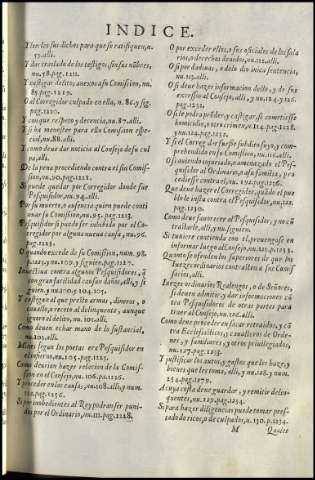 INDICE.
Y leerles sus dichos para que se ratifiquen, n.
53. alli.
Y dar traslado de los testigos sin sus nõbres,
nu. 58. pag. 1211.
Y castigar delitos anexos a su Comission, nu.
85. pagi. 1219.
O al Corregidor culpado en ella, n. 86. y sig.
pag. 1220.
Y con que respeto y decencia, nu. 87. alli.
Y si ha menester para ello Comission espe
cial, nu. 88. alli.
Y como deue dar noticia al Consejo de su cul
pa, alli.
De la pena procediendo contra el sin Comis-
sion, nu. 90. pag. 1221.
Si puede quedar por Corregidor donde fue
Pesquisidor, nu. 94. alli.
Por su muerte, o ausencia quien puede conti
nuar su Comission, nu. 95. pag. 1223.
Pesquisidor si puede ser inhibido por el Co
rregidor por alguna nueua causa, nu. 96.
pag. 1223.
O quando excede de su Comission, num. 98.
pag. 1223. nu. 109. y siguien. 1227.
Inuectiua contra algunos Pesquisidores, q̃
con gran facilidad causan daños, alli, y si
guien. y nu. 100. y 104. 1225.
Y castigue al que presto armas, dineros, o
cauallo, o receto al delinquente, aunque
quiere el delito, nu. 101. alli.
Como deuen echar mano de lo sustancial,
nu. 102. alli.
Minos fingen los poetas era Pesquisidor en
el infierno, nu. 104. pag. 1225.
Como deurian hazer relacion de la Comis-
sion en el Consejo, nu. 106. pa. 1226.
Y proceder en las causas, nu. 108. alli, y num.
110. pag. 1236.
Si por impedientes al Rey podran ser puni-
dos por el Ordinario, nu. 111. pag. 1228.
O por exceder ellos, o sus oficiales de los sala
rios, o derechos deuidos, nu. 112. alli.
O si por dadiuas, o odio dio iniqua sentencia,
nu. 113. alli.
O si deue hazer informacion desto, y de sus
excessos al Consejo, alli, y nu. 124. y 126.
pag. 1232.
O si le podra pedir, y castigar, si cometiesse
homicidio, o otro crimen, n. 114. pag. 1228. y
nu. 122. y 125. alli.
Y si el Corregidor fuesse subdito suyo, y com-
prehendido en su Comission, nu. 116. alli.
O si auiendo injuriado, o amenazado el Pes-
quisidor al Ordinario, o a su familia, pro-
cediesse contra el, nu. 122. pag. 1236.
Que deue hazer el Corregidor, quãdo el pue
blo le insta contra el Pesquisidor, nu. 122.
pag. 1231.
Como deue fauorecer al Pesquisidor, y no cõ
trastarle, alli, y nu. siguien.
Si tuuiere contienda con el, preuenga en in-
formar luego al Consejo, nu. 125. p. 1232. alli.
Quienes se ofenden los superiores de que los
Iuezes ordinarios contrasten a sus Comis-
sarios, alli.
Iuezes ordinarios Realengos, o de Señores,
si deuen admitir, y dar informaciones cõ-
tra Pesquisidores de otras partes para
traer al Consejo, alli.
Como deue proceder en sacar retraidos, y cõ
tra Ecclesiasticos, y caualleros de Ordenes,
y familiares, y otros priuilegiados,
nu. 127. pag. 1233.
Y justificar los autos, y gastos que les haze, y
bienes que les toma, alli, y nu. 128. y num.
234. pag. 1279.
A cuya costa deue guardar, y remitir delin-
quentes, nu. 129. pag. 1234.
Si para hazer diligencias puede tomar pres-
tado de ricos, o de culpados, n. 130. p. 1234.
M
Quales